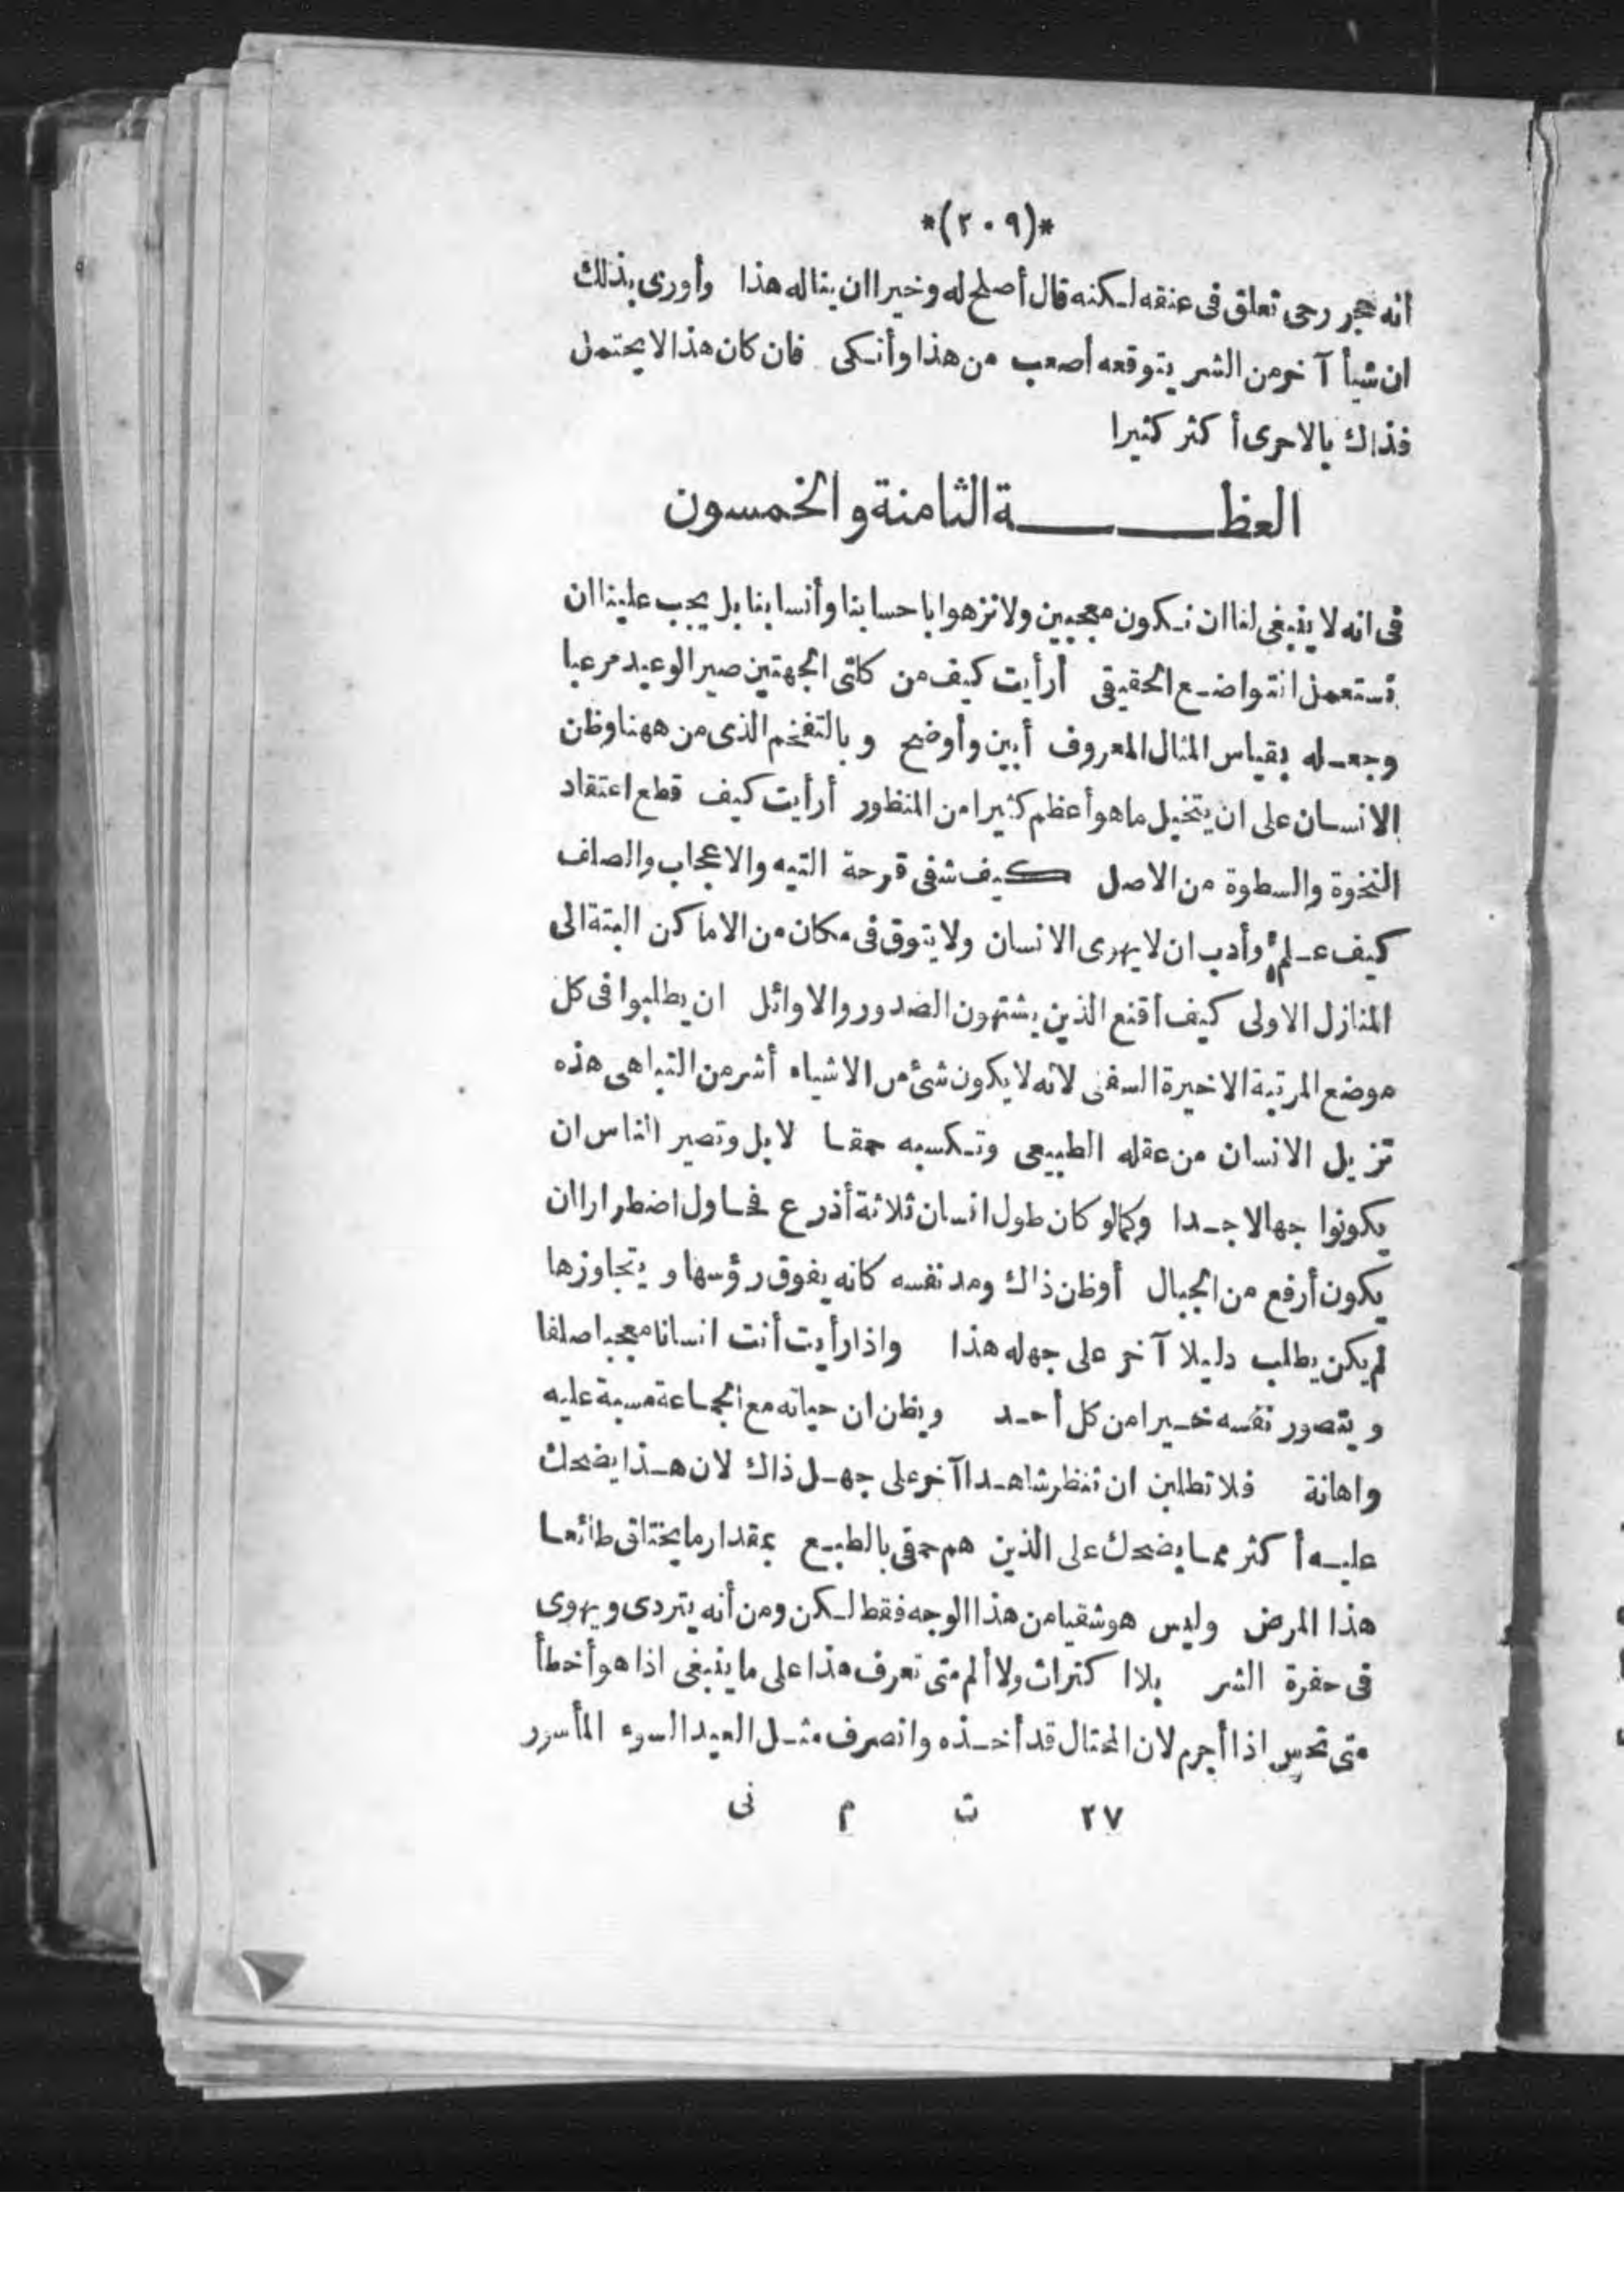 *(٢٠٩)*
انه حجر رحى تعلق فى عنقه لكنه قال أصلح له وخيرا ان يناله هذا وأورى بذلك
ان شيأ آخر من الشر يتوقعه أصعب من هذا وأنكى فان كان هذا لا يحتمل
فذاك بالاحرى أكثر كثيرا
العظة الثامنة والخمسون
فى انه لا ينبغى لنا ان نكون معجبين ولا نزهوا باحسابنا وأنسابنا بل يجب علينا ان
نستعمل التواضع الحقيقى أرأيت كيف من كلتى الجهتين صير الوعيد مرعبا
وجعله بقياس المثال المعروف أبين وأوضح و بالتفخم الذى من ههنا وظن
الانسان على ان يتخيل ما هو أعظم كثيرا من المنظور أرأيت كيف قطع اعتقاد
النخوة والسطوة من الاصل كيف شفى قرحة التيه والاعجاب والصلف
كيف علم وأدب ان لا يهوى الانسان ولا يتوق فى مكان من الاماكن البتة الى
المنازل الاولى كيف أقنع الذين يشتهون الصدور والاوائل ان يطلبوا فى كل
موضع المرتبة الاخيرة السفلى لانه لا يكون شئ من الاشياء أشر من التباهى هذه
تزيل الانسان من عقله الطبيعى وتكسبه حمقا لا بل وتصير الناس ان
يكونوا جهالا جدا وكما لو كان طول انسان ثلاثة أذرع فحاول اضطرارا ان
يكون أرفع من الجبال أو ظن ذاك ومد نفسه كانه يفوق رؤسها و يتجاوزها
لم يكن يطلب دليلا آخر على جهله هذا واذا رأيت أنت انسانا معجبا صلفا
و يتصور نفسه خيرا من كل أحد ويظن ان حياته مع الجماعة مسبة عليه
واهانة فلا تطلبن ان تنظر شاهدا آخر على جهل ذاك لان هذا يضحك
عليه أكثر مما يضحك على الذين هم حمقى بالطبع بمقدار ما يختلق طائعا
هذا المرض وليس هو شقيا من هذا الوجه فقط لكن ومن أنه يتردى ويهوى
فى حفرة الشر بلا اكتراث ولا ألم متى تعرف هذا على ما ينبغى اذا هو أخطأ
متى تحس اذا أجرم لان المحتال قد أخذه وانصرف مثل العبد السوء المأسور
٢٧ ت م نى